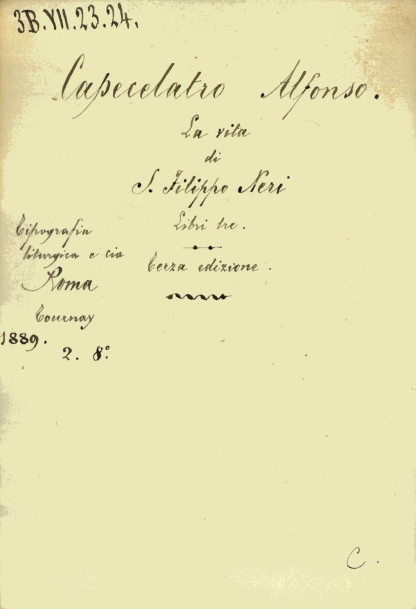 3B.VII.23.24.
Capecelatro Alfonso.
La vita
di
S. Filippo Neri
Libri tre.
Terza edizione.
Tipografia
liturgica e cia
Roma
Tournay
1889.
2. 8º
C.